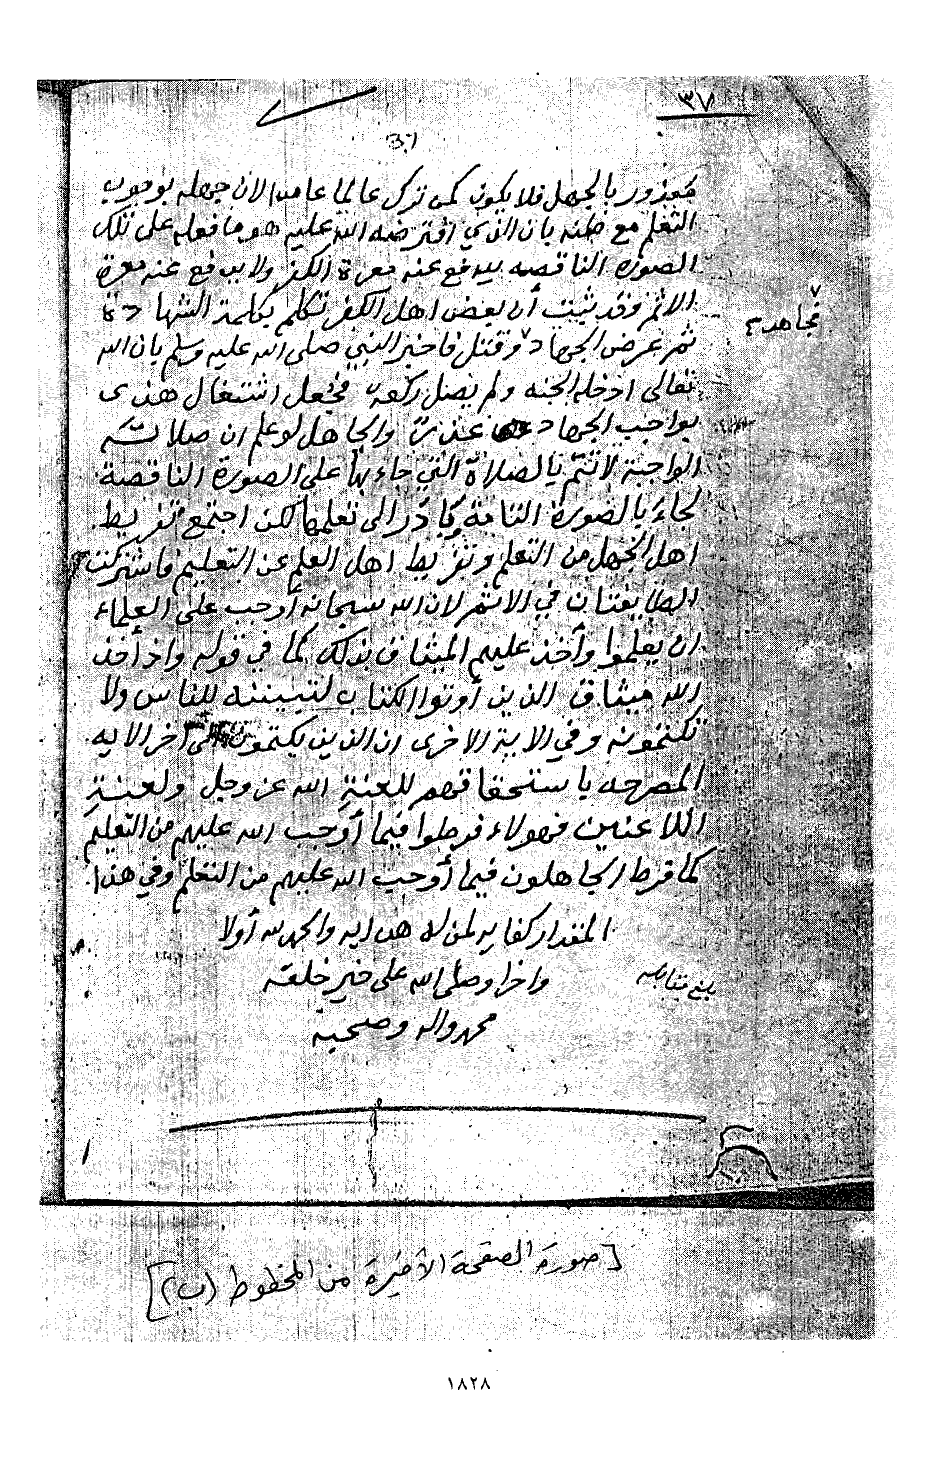 ٣٧
معذور بالجهل فلا يكون كمن ترك عالما عامدا لان جهله بوجوب
التعلم مع ظنه بان الذي افترضه الله عليه هو ما فعله على تلك
الصورة الناقصه يدفع عنه معرة الكفر ولا يدفع عنه معرة
الاثم وقد ثبت أن بعض اهل الكفر تكلم بكلمة الشهادة
ثم عرض الجهاد وقتل فاخبر النبي صلى الله عليه وسلم بان الله
فجاهد
تعالى ادخله الجنه ولم يصل ركعة فجعل اشتغال هذى
بواجب الجهاد عذرا والجاهل لو علم ان صلاته
الواجبة لا تتم بالصلاة التي جاء بها على الصورة الناقصة
لجاء بالصورة التامة وبادر الى تعلمها لكن اجتمع تفريط
اهل الجهل من التعلم وتفريط اهل العلم عن التعليم فاشتركت
الطايفتان في الاثم لان الله سبحانه أوجب على العلماء
ان يعلموا وأخذ عليهم الميثاق بذلك كما في قوله واذ أخذ
الله ميثاق الذين أوتوا الكتاب لتبيننه للناس ولا
تكتمونه وفي الاية الاخرى ان الذين يكتمون الى آخر الايه
المصرحه باستحقاقهم للعنة الله عز وجل ولعنة
اللاعنين فهولاء فرطوا فيما أوجب الله عليهم من التعليم
كما فرط الجاهلون فيما أوجب الله عليهم من التعلم وفي هذا
المقدار كفايه لمن له هدايه والحمد لله أولا
واخرا وصلى الله على خير خلقه
بلغ مقابله
محمد واله وصحبه
[صورة الصفحة الأخيرة من المخطوط (ب)]
١٨٢٨